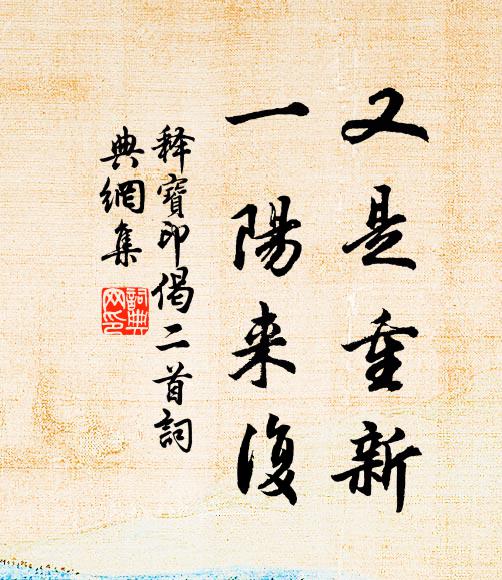 又是重新
一陽来復
释寶印偈二首詞
典網集
詞典
网印